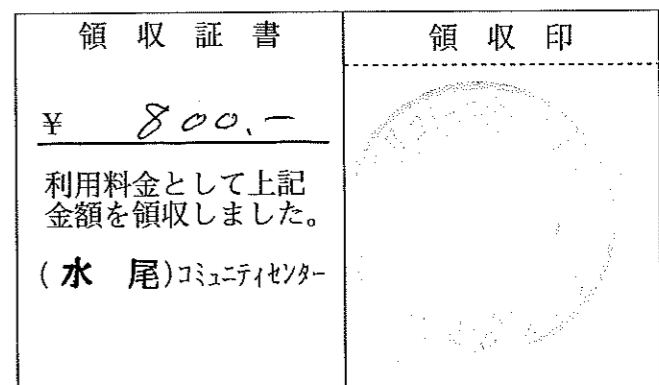 領収証書
領収印
¥ 800.-
利用料金として上記
金額を領収しました。
(水尾)コミュニティセンター